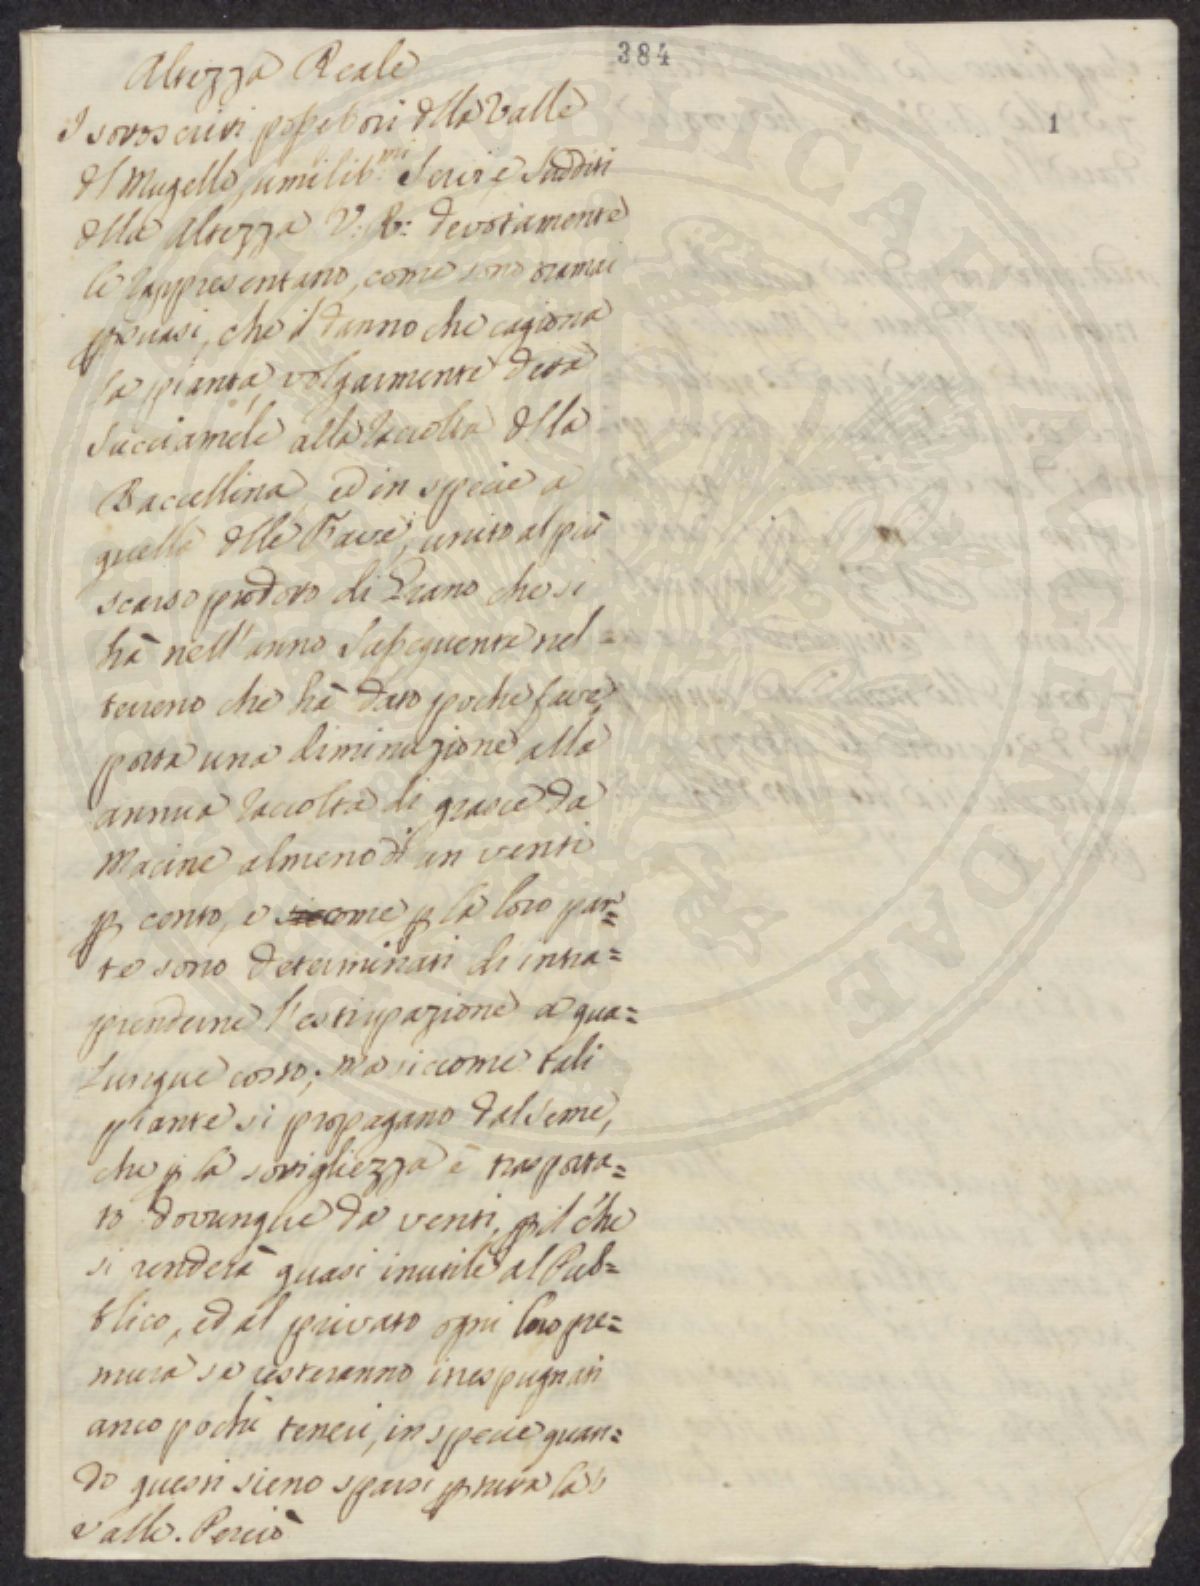 384
1
Altezza Reale
I sottoscritti possessori della Valle
del Mugello, umiliss.mi Servi e Sudditi
della Altezza V: R: devotamente
le rappresentano, come sono oramai
persuasi, che il danno che cagiona
la pianta, volgarmente detta
Succiamele alla raccolta della
Baccellina, ed in specie a
quella delle Fave, unito al più
scarso prodotto di Grano che si
hà nell'anno susseguente nel=
terreno che hà dato poche fave,
porta una diminuzione alla
annua raccolta di grasce da
Macine almeno di un venti
p cento, e siccome p la loro par=
te sono determinati di intra=
prenderne l'estirpazione a qua=
lunque costo; ma siccome tali
piante si propagano dal seme,
che p la sottigliezza è trasporta=
to dovunque da venti, p il che
si renderà quasi inutile al Pub=
blico, ed al privato ogni loro pre=
mura se resteranno inespugnati
anco pochi terreni, in specie quan=
do questi sieno sparsi p tutta la
valle. Perciò
BIBLICAE AUGENDAE